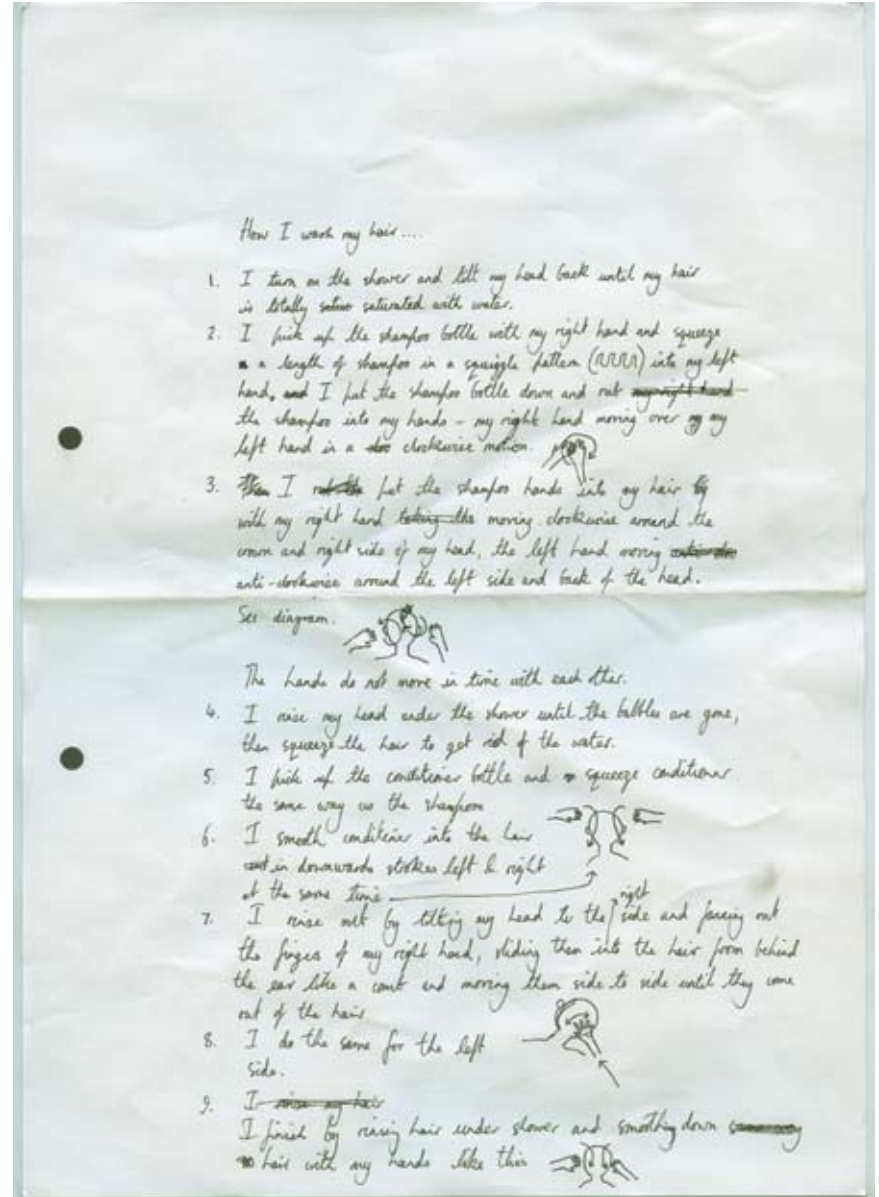 How I wash my hair....
1. I turn on the shower and tilt my head back until my hair
is totally satur saturated with water.
2. I pick up the shampoo bottle with my right hand and squeeze
a length of shampoo in a squiggle pattern () into my left
hand, and I put the shampoo bottle down and rub my right hand
the shampoo into my hands - my right hand moving over my
left hand in a cloc clockwise motion.
3. Then I rub the put the shampoo hands into my hair by
with my right hand taking the moving clockwise around the
crown and right side of my head, the left hand moving
anti-clockwise around the left side and back of the head.
See diagram.
The hands do not move in time with each other.
4. I rinse my head under the shower until the bubbles are gone,
then squeeze the hair to get rid of the water.
5. I pick up the conditioner bottle and squeeze conditioner
the same way as the shampoo
6. I smooth conditioner into the hair
in downwards strokes left & right
at the same time
7. I rinse out by tilting my head to the right side and fanning out
the fingers of my right hand, sliding them into the hair from behind
the ear like a comb and moving them side to side until they come
out of the hair
8. I do the same for the left
side.
9. I rinse my hair
I finish by rinsing hair under shower and smoothing down
hair with my hands like this